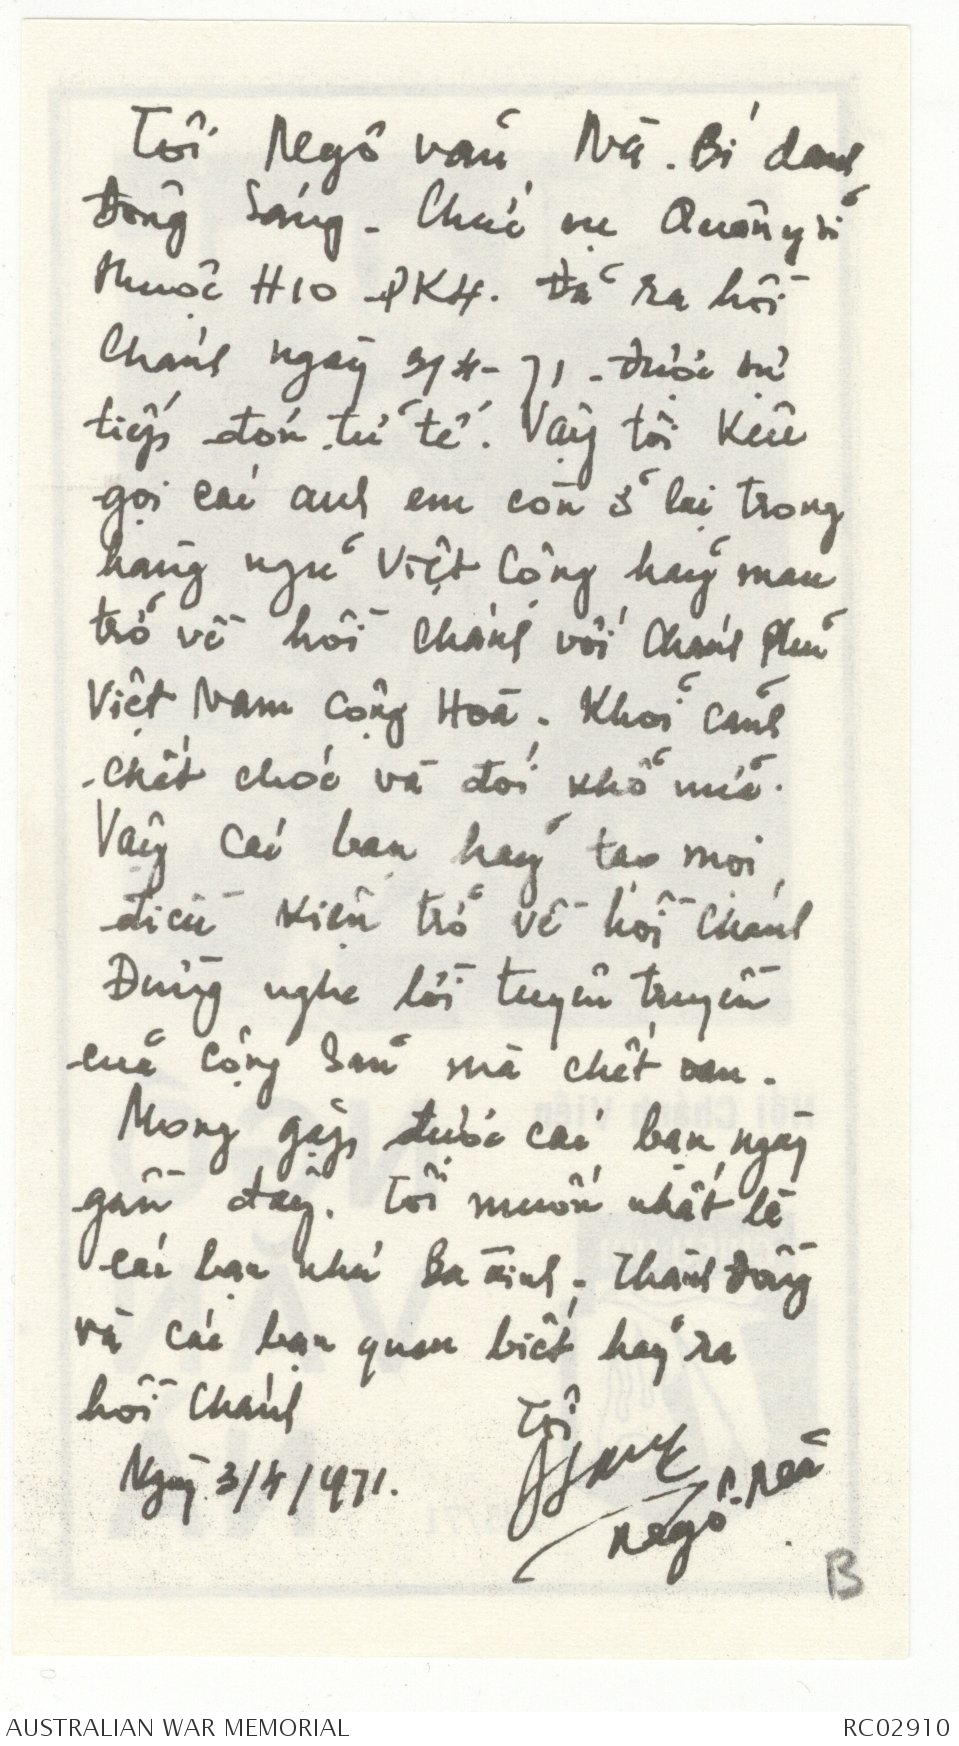 Tôi Ngô văn Nã. Bí danh
Đồng Sáng - Chức vụ Quân y sĩ
thuộc H10 - PK4. Đã ra hồi
Chánh ngày 3/4-71 - được sự
tiếp đón tử tế. Vậy tôi kêu
gọi các anh em còn ở lại trong
hàng ngũ Việt Cộng hãy mau
trở về hồi Chánh với Chánh Phủ
Việt Nam Cộng Hoà. Khỏi cảnh
chết chóc và đói khổ nữa.
Vậy các bạn hãy tạo mọi
điều kiện trở về hồi Chánh
Đừng nghe lời tuyên truyền
của Cộng Sản mà chết oan.
Mong gặp được các bạn ngày
gần đây. Tôi muốn nhất là
các bạn như Ba - Thành Đồng
và các bạn quen biết hãy ra
hồi Chánh
Tôi
Ngày 3/4/1971.
Ngô
B
Hồi Chánh Viên
NGÔ
VĂN
AUSTRALIAN WAR MEMORIAL RC02910